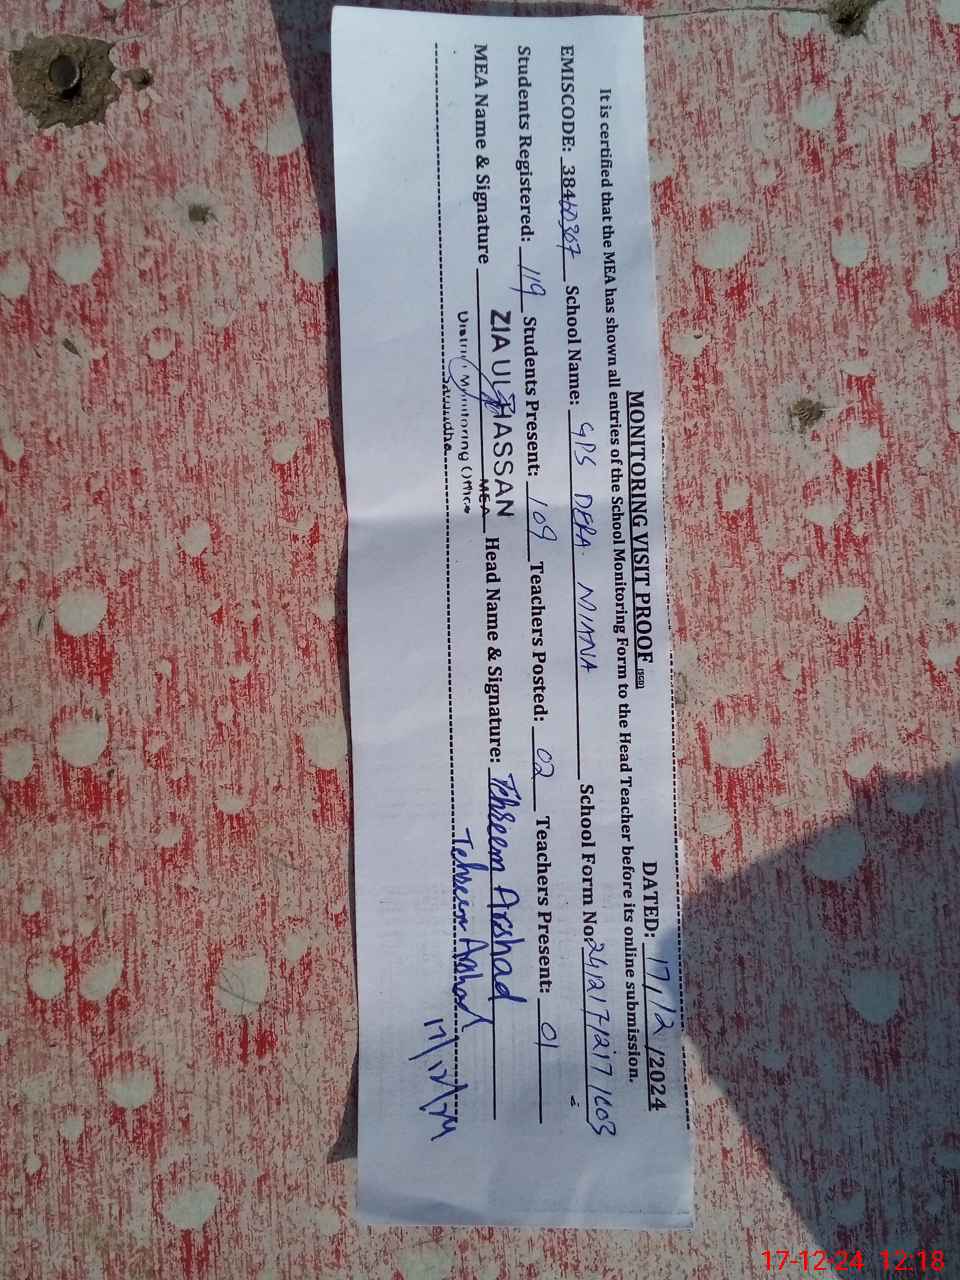 MONITORING VISIT PROOF (SCO) DATED: 17/12/2024
It is certified that the MEA has shown all entries of the School Monitoring Form to the Head Teacher before its online submission.
EMISCODE: 38460307 School Name: GPS DERA MIANA School Form No.
Students Registered: 119 Students Present: 109 Teachers Posted: 02 Teachers Present: 01
MEA Name & Signature ZIA UL HASSAN Head Name & Signature: Tehseem Arshad
MEA
District Monitoring Office
Tehseem Arshad
17/12/24
17-12-24 12:18